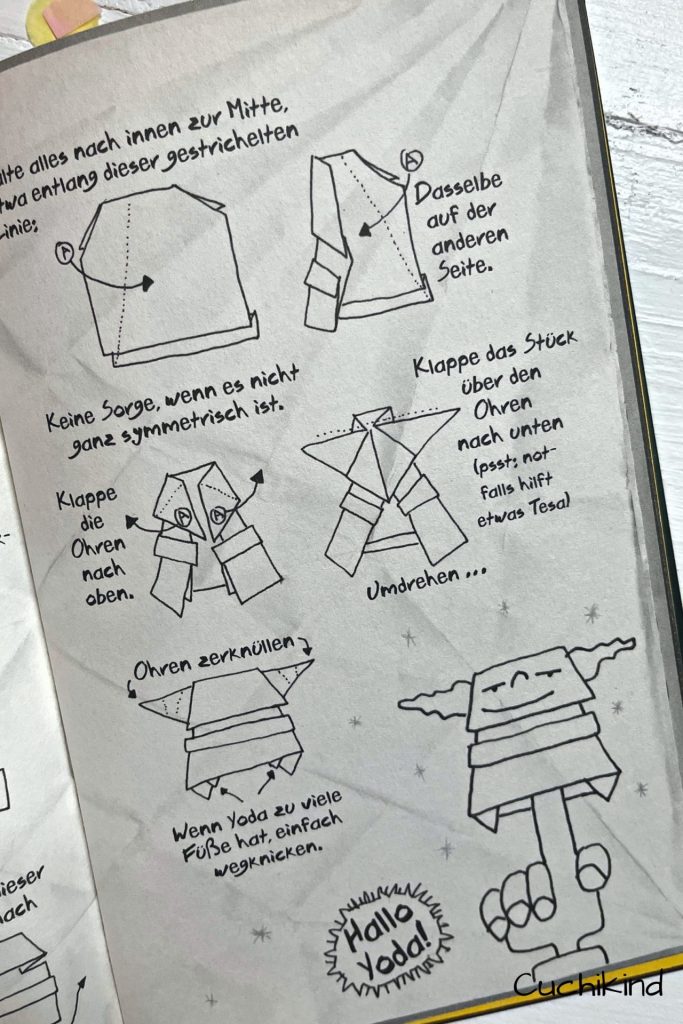 alles nach innen zur Mitte,
entlang dieser gestrichelten
A
A
Dasselbe
auf der
anderen
Seite.
Keine Sorge, wenn es nicht
ganz symmetrisch ist.
Klappe das Stück
über den
Ohren
nach unten
(psst: not-
falls hilft
etwas Tesa)
Klappe
die
Ohren
nach
oben.
A
A
Umdrehen ...
Ohren zerknüllen
Wenn Yoda zu viele
Füße hat, einfach
wegknicken.
Hallo
Yoda!
Cuchikind